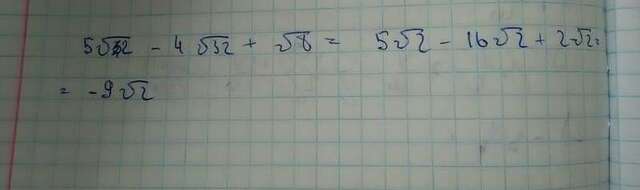 5√2 - 4√32 + √8 = 5√2 - 16√2 + 2√2 =
= -9√2